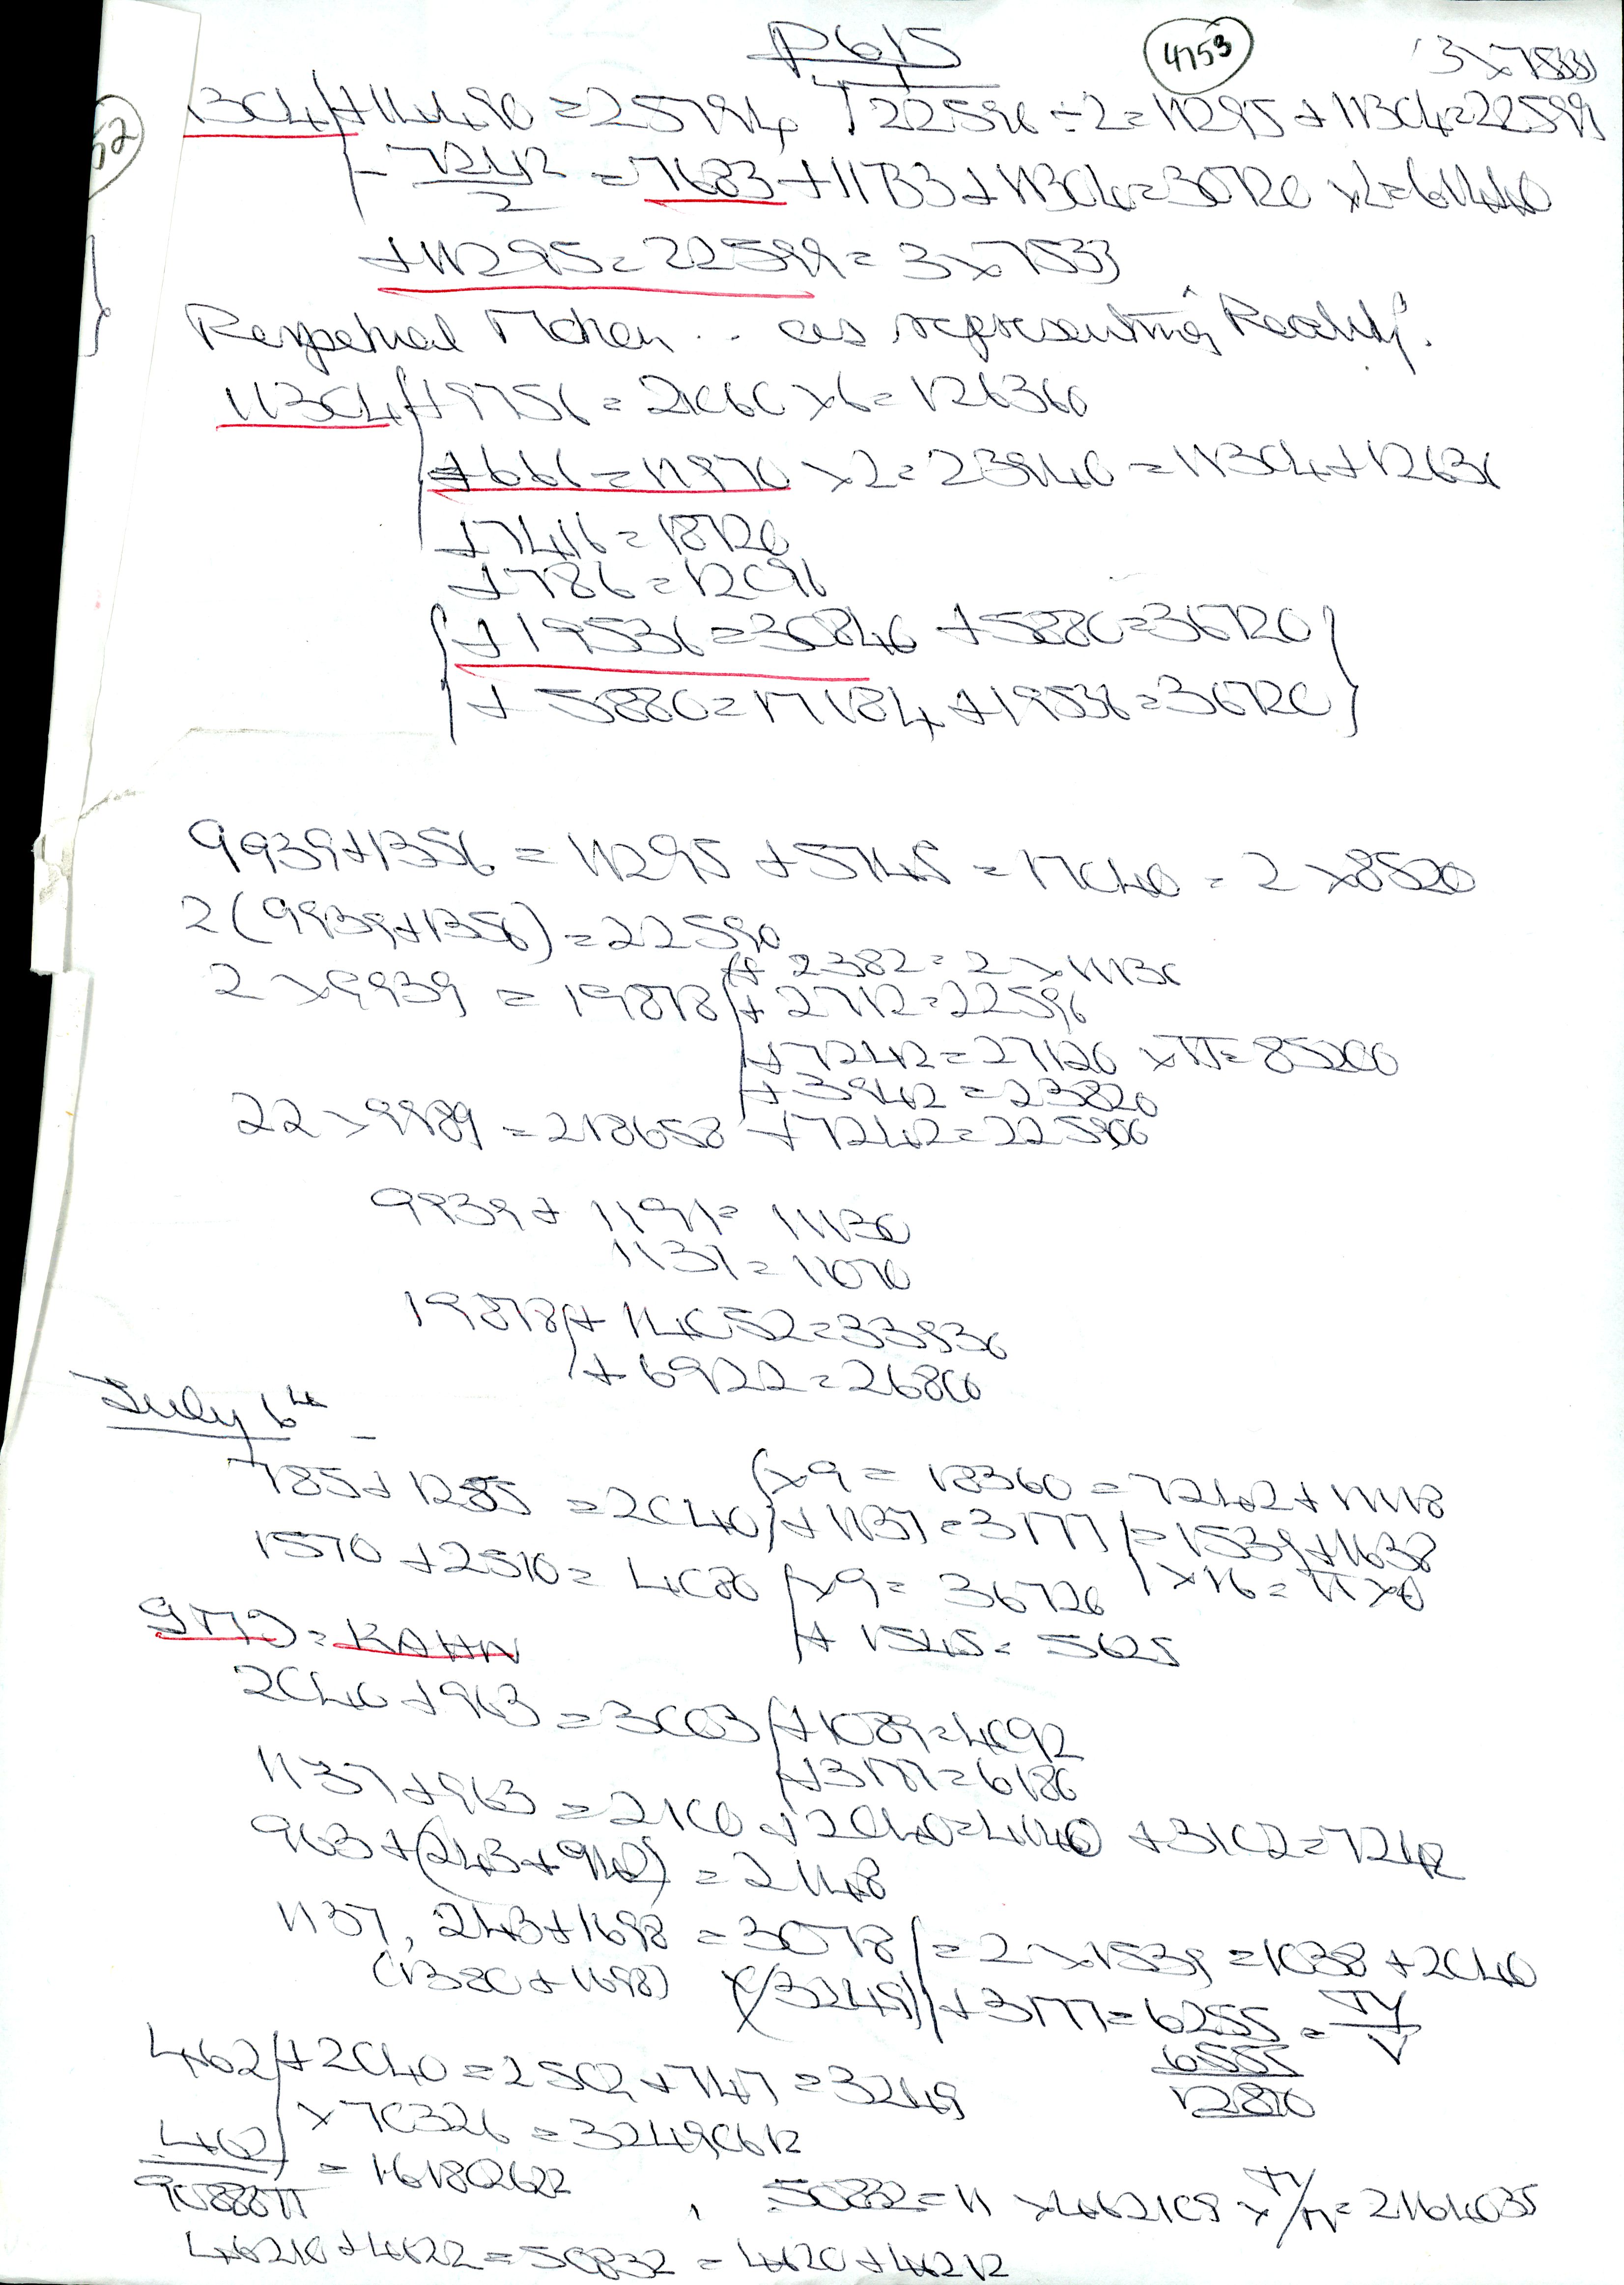 P615
4753
3 x 7533
11304 + 14490 = 25794, 22590 ÷ 2 = 11295 + 11304 = 22599
- 7242/2 = 7683 + 11733 + 11304 = 30720 x 2 = 61440
+ 11295 = 22599 = 3 x 7533
Perpetual Motion .. as representing Reality.
11304 + 9756 = 21060 x 6 = 126360
+ 666 = 11970 x 2 = 23940 = 11304 + 12636
+ 7416 = 18720
+ 786 = 12090
+ 19536 = 30840 + 5880 = 36720
+ 5880 = 17184 + 19536 = 36720
9939 + 1356 = 11295 + 5745 = 17040 = 2 x 8520
2(9939 + 1356) = 22590
+ 2382 = 2 x 11130
2 x 9939 = 19878 + 2712 = 22590
+ 7242 = 27120 x π = 85200
+ 3942 = 23820
22 x 9939 = 218658 + 7242 = 225900
9939 + 1191 = 11130
1131 = 11070
19878 + 14052 = 33930
+ 6922 = 26800
July 6th
785 + 1255 = 2040 x 9 = 18360 = 7242 + 11118
+ 1137 = 3177 = 1539 + 1638
1570 + 2510 = 4080 x 9 = 36720
+ 1545 = 5625
= KAHN
2040 + 963 = 3003 + 1089 = 4092
+ 3177 = 6180
1137 + 963 = 2100 + 2040 = 4140 + 3102 = 7242
963 + (243 + 942) = 2148
1137, 243 + 1698 = 3078 = 2 x 1539 = 1038 + 2040
(1380 + 1698) (3249) + 3177 = 6255
6555
12810
462 + 2040 = 2502 + 747 = 3249
x 70326 = 32490612
= 16180262
50832 = 11 x 462109
46210 + 4622 = 50832 = 4620 + 46212